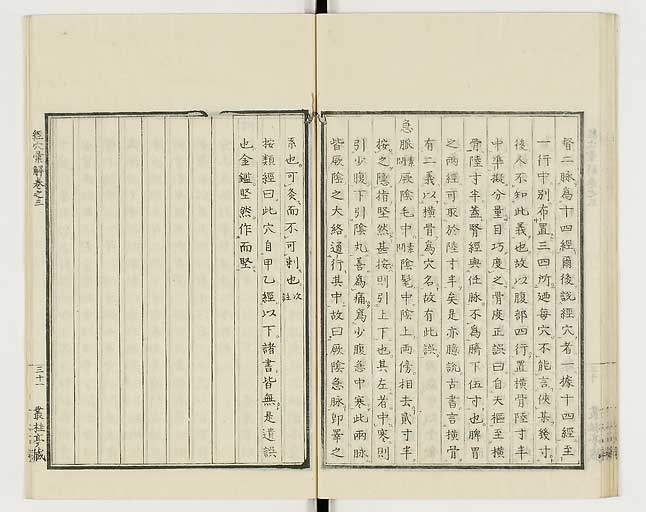 督二脉為十四經爾後說經穴者一據十四經至
一行中別布置三四所廼每穴不能言俠某幾寸
後人不知此義也故以腹部四行置橫骨陸寸半
中準擬分量目巧度之骨度正誤曰自天樞至橫
骨陸寸半蓋腎經與任脉不為臍下伍寸也脾胃
之両經可取於陸寸半矣是亦臆說古書言橫骨
有二義以橫骨為穴名故有此誤
急脈 厥陰毛中 陰髦中陰上両傍相去貳寸半
按之隱指堅然甚按則引上下也其左者中寒則
引少腹下引陰丸善為痛為少腹急中寒此兩脉
皆厥陰之大絡通行其中故曰厥陰急脉即睪之
系也可灸而不可刺也次註
按類經曰此穴自甲乙經以下諸書皆無是遺誤
也金鑑堅然作而堅
經穴彙解卷之三
三十一
叢桂亭藏